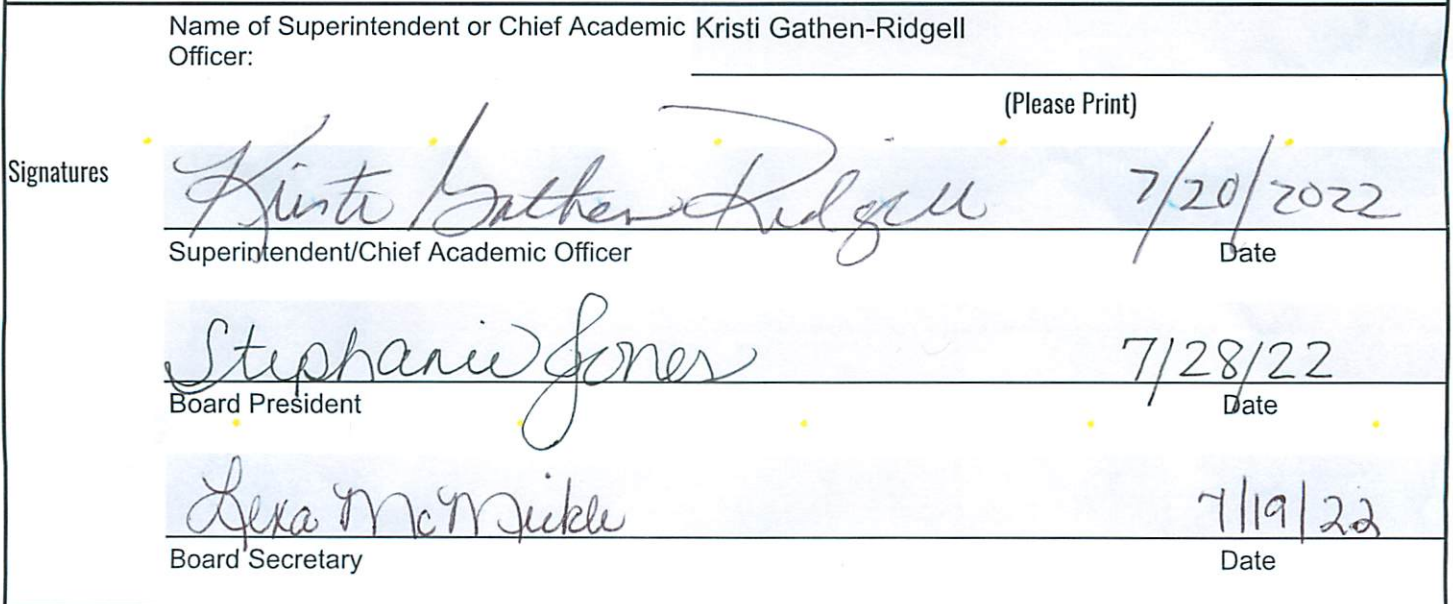 Name of Superintendent or Chief Academic Kristi Gathen-Ridgell
Officer:
(Please Print)
Signatures
Kristi Gathen-Ridgell 7/20/2022
Superintendent/Chief Academic Officer Date
Stephanie Jones 7/28/22
Board President Date
Lexa McMickle 7/19/22
Board Secretary Date